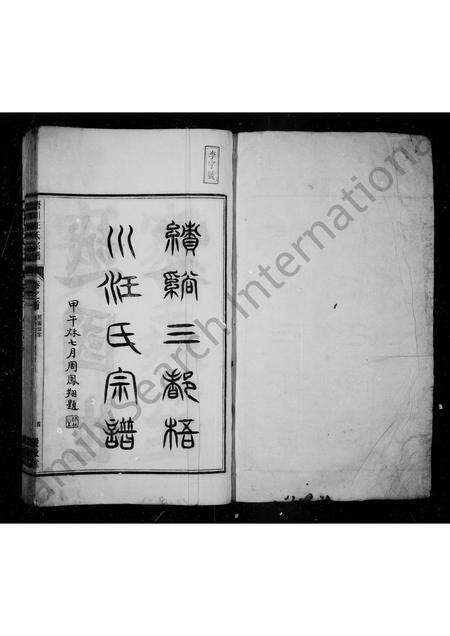 李字號
績谿三都梧
川汪氏宗譜
甲午秋七月周鳳翔題
FamilySearch International